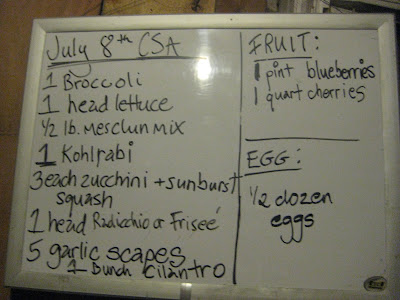 July 8th CSA
1 Broccoli
1 head lettuce
1/2 lb. Mesclun mix
1 Kohlrabi
3 each zucchini + sunburst
squash
1 head Radicchio or Friseé
5 garlic scapes
1 Bunch cilantro
FRUIT:
1 pint blueberries
1 quart cherries
EGG:
1/2 dozen
eggs